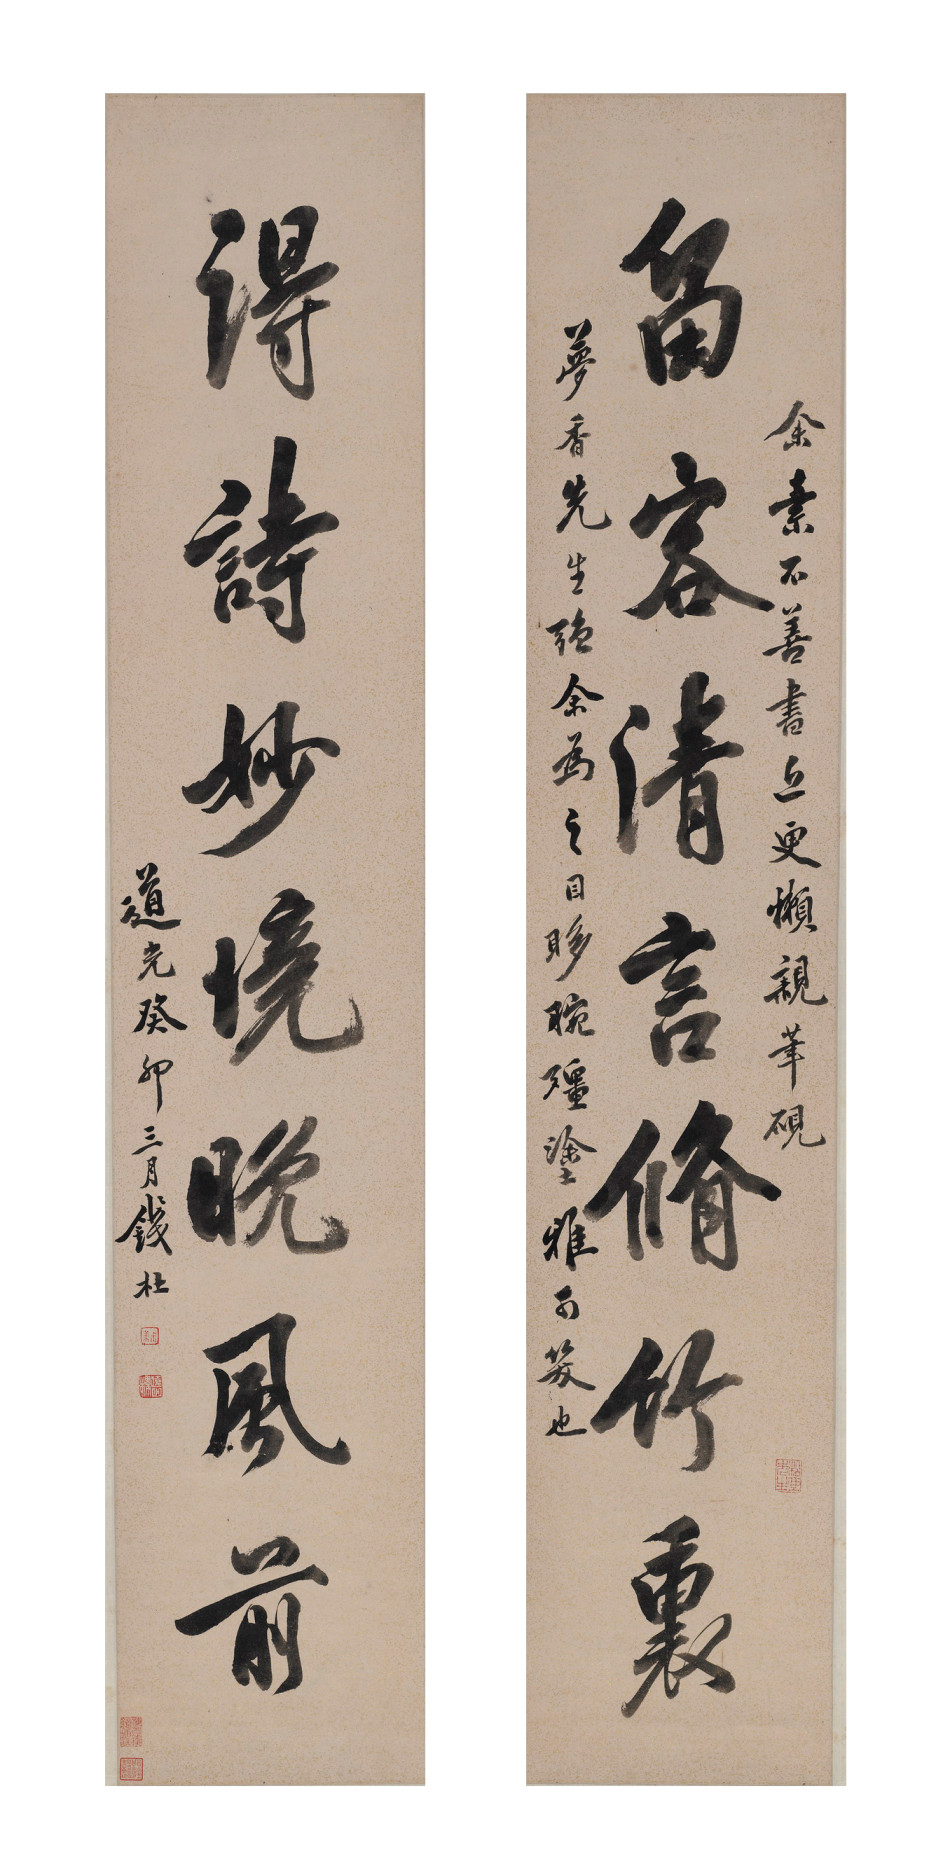 余素不善書近更懶親筆硯
留客清言脩竹裏
夢香先生強余為之目眵腕殭塗雅可笑也
得詩妙境晚風前
道光癸卯三月錢杜